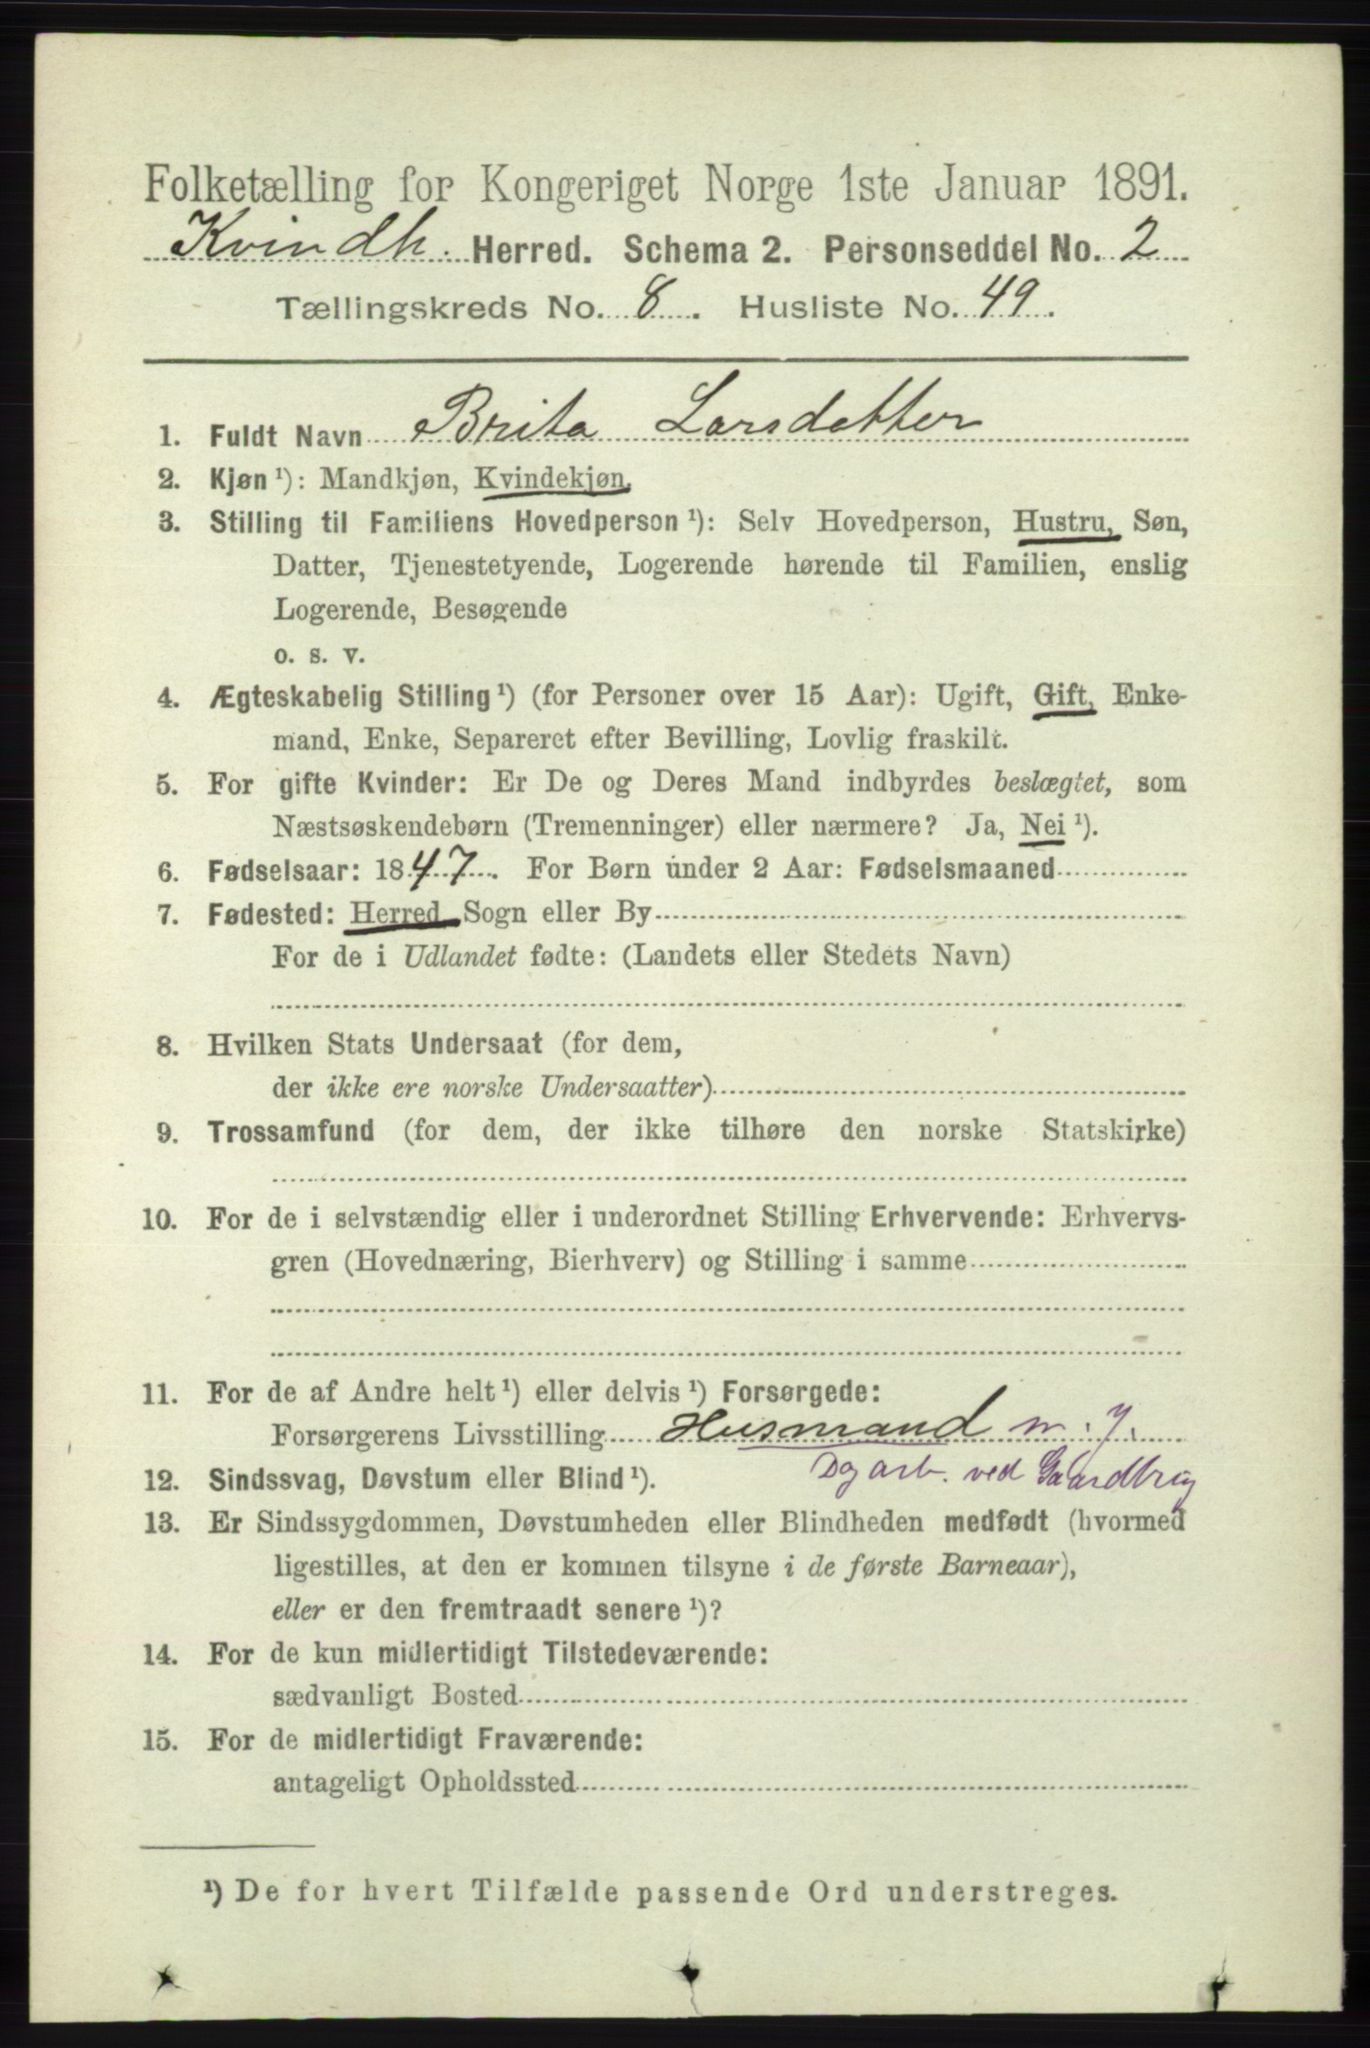 Folketælling for Kongeriget Norge 1ste Januar 1891.
Kvindh. Herred. Schema 2. Personseddel No. 2
Tællingskreds No. 8. Husliste No. 49.
1. Fuldt Navn Brita Larsdatter
2. Kjøn ¹): Mandkjøn, Kvindekjøn.
3. Stilling til Familiens Hovedperson ¹): Selv Hovedperson, Hustru, Søn,
Datter, Tjenestetyende, Logerende hørende til Familien, enslig
Logerende, Besøgende
o. s. v.
4. Ægteskabelig Stilling ¹) (for Personer over 15 Aar): Ugift, Gift, Enke-
mand, Enke, Separeret efter Bevilling, Lovlig fraskilt.
5. For gifte Kvinder: Er De og Deres Mand indbyrdes beslægtet, som
Næstsøskendebørn (Tremenninger) eller nærmere? Ja, Nei ¹).
6. Fødselsaar: 1847. For Børn under 2 Aar: Fødselsmaaned
7. Fødested: Herred Sogn eller By
For de i Udlandet fødte: (Landets eller Stedets Navn)
8. Hvilken Stats Undersaat (for dem,
der ikke ere norske Undersaatter)
9. Trossamfund (for dem, der ikke tilhøre den norske Statskirke)
10. For de i selvstændig eller i underordnet Stilling Erhvervende: Erhvervs-
gren (Hovednæring, Bierhverv) og Stilling i samme
11. For de af Andre helt ¹) eller delvis ¹) Forsørgede:
Forsørgerens Livsstilling Husmand m. J.
12. Sindssvag, Døvstum eller Blind ¹). Dagarb. ved Gaardbrug
13. Er Sindssygdommen, Døvstumheden eller Blindheden medfødt (hvormed
ligestilles, at den er kommen tilsyne i de første Barneaar),
eller er den fremtraadt senere ¹)?
14. For de kun midlertidigt Tilstedeværende:
sædvanligt Bosted
15. For de midlertidigt Fraværende:
antageligt Opholdssted
¹) De for hvert Tilfælde passende Ord understreges.